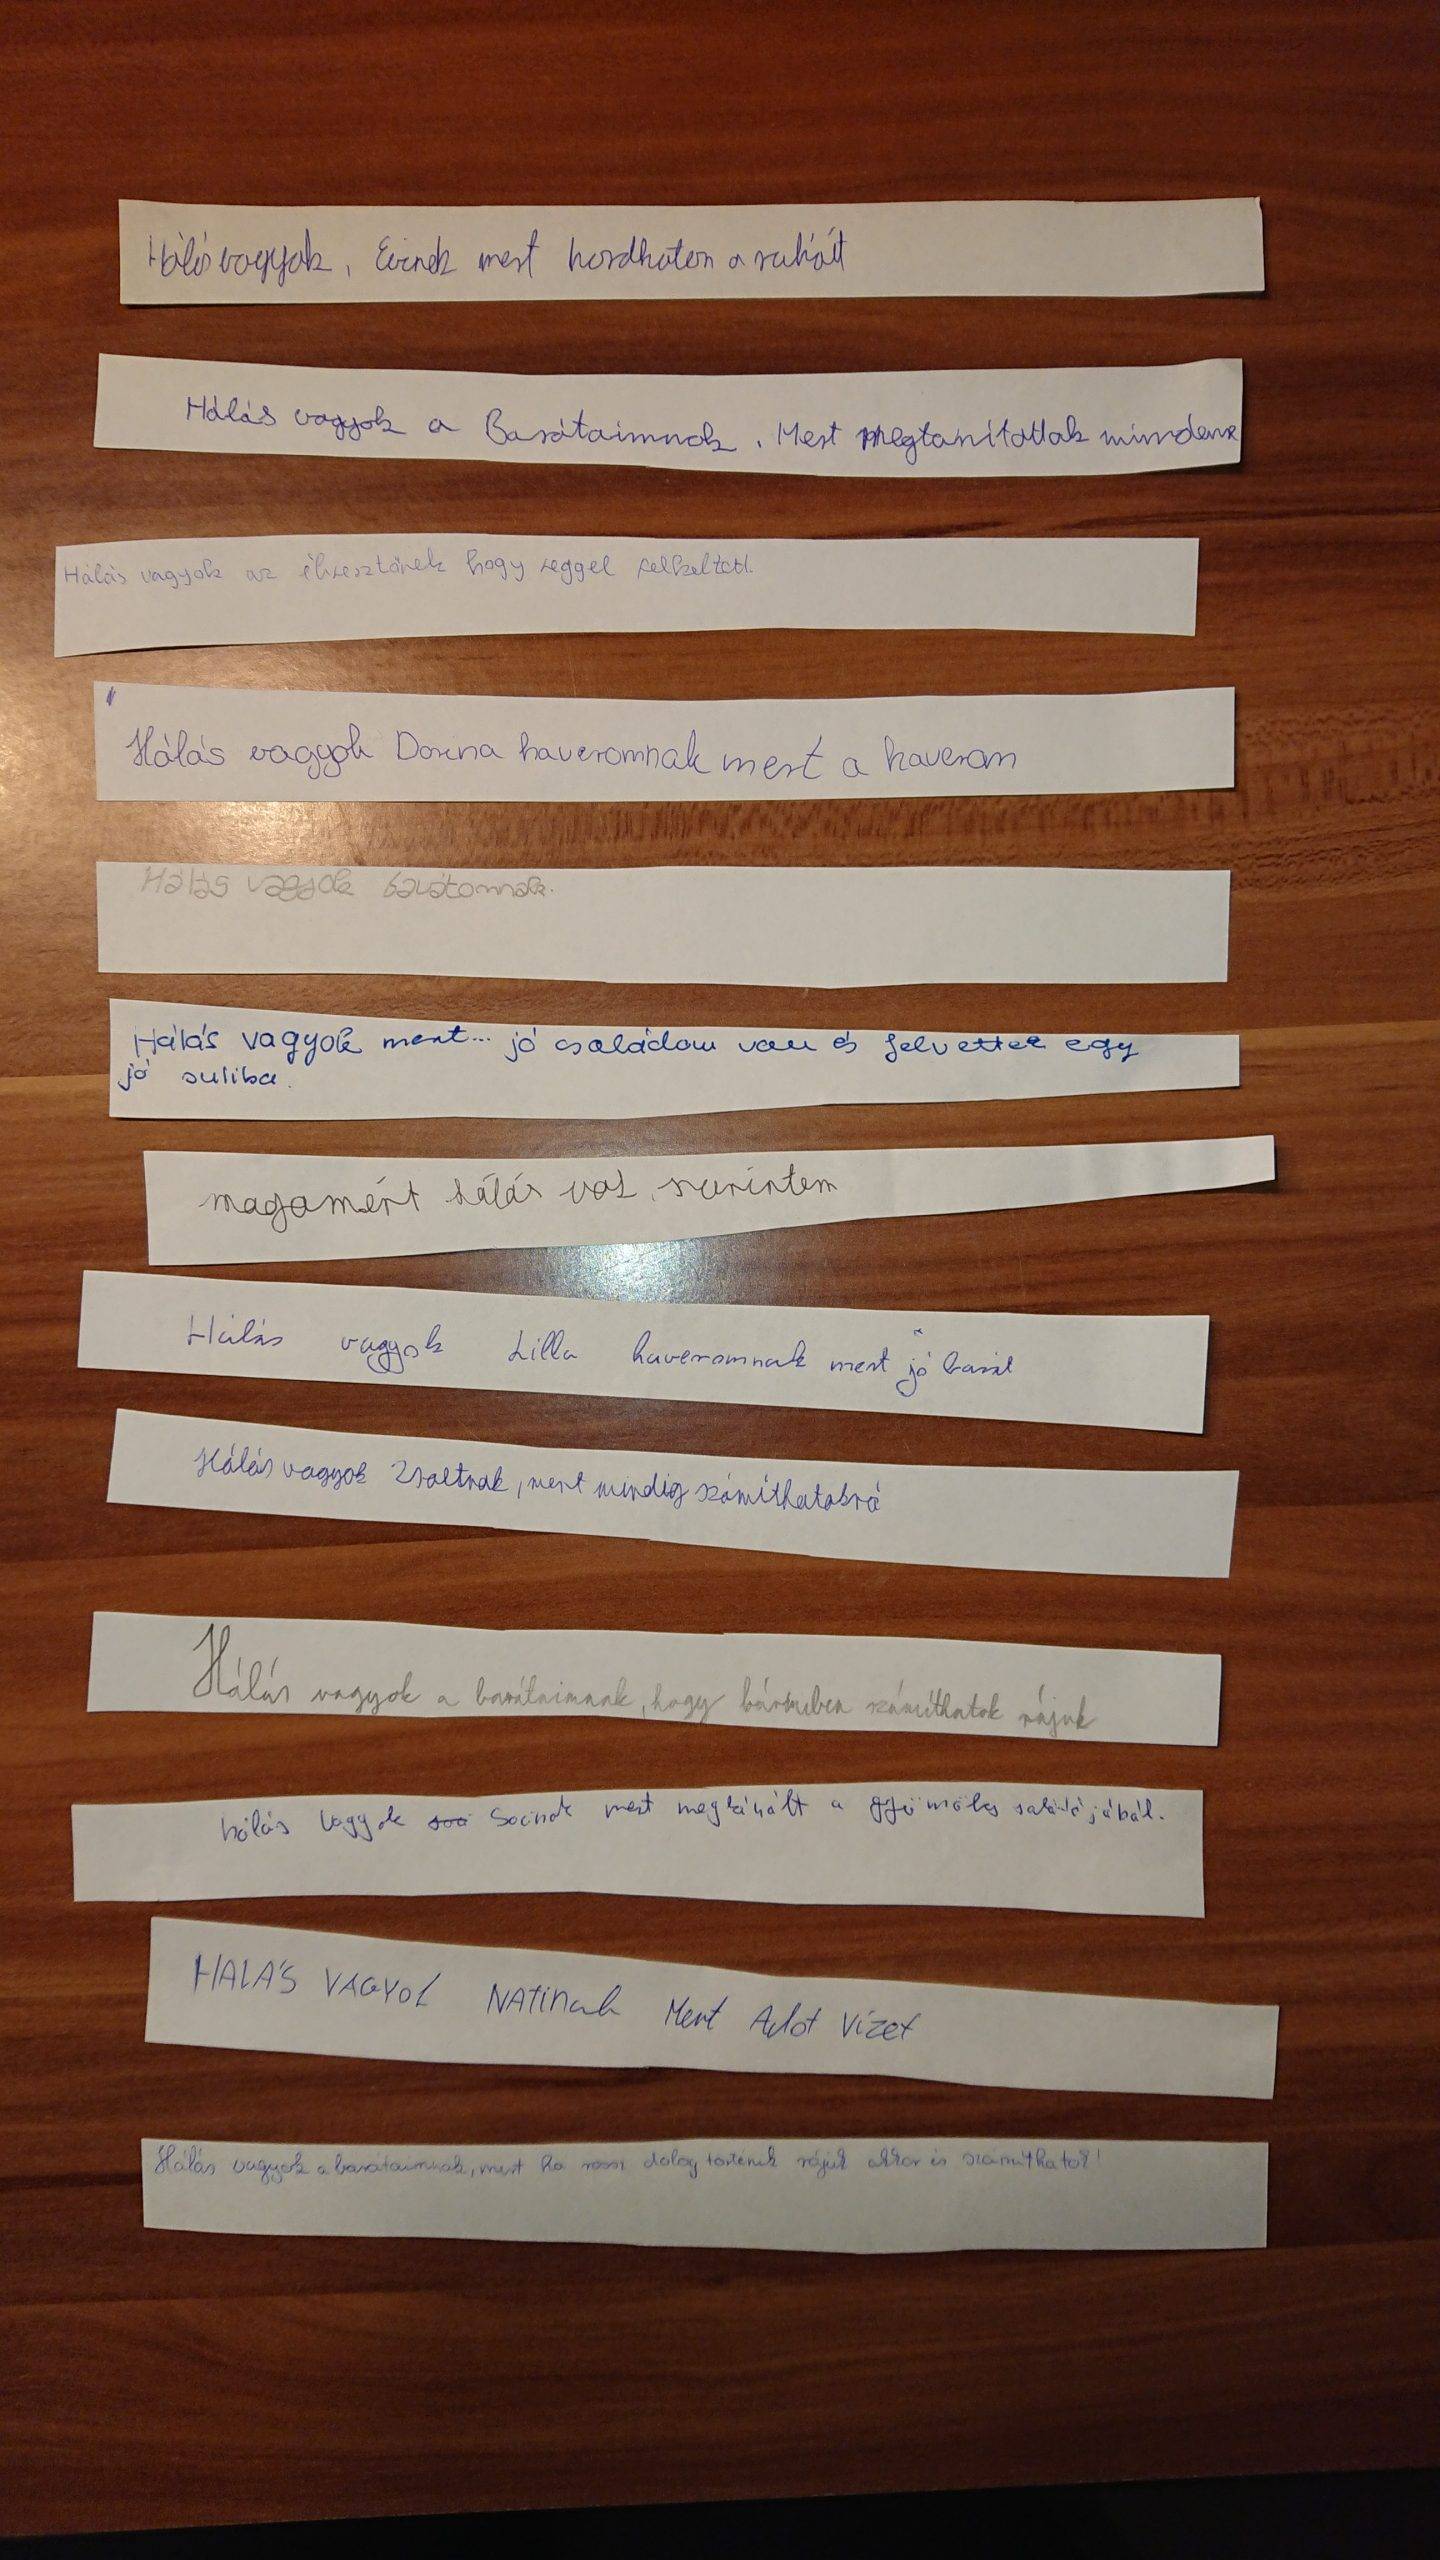 Hálás vagyok, Evinek mert hordhatom a ruháit
Hálás vagyok a Barátaimnak. Mert megtanítottak mindenre
Hálás vagyok az ébresztőnek hogy reggel felkeltett.
Hálás vagyok Dorina haveromnak mert a haverom
Hálás vagyok barátomnak.
Hálás vagyok mert... jó családom van és felvettek egy
jó suliba.
magamért hálás vok szerintem
Hálás vagyok Lilla haveromnak mert jó barát
Hálás vagyok Zsoltnak, mert mindig számíthatok rá
Hálás vagyok a barátaimnak, hogy bármiben számíthatok rájuk
hálás vagyok Socinak mert megkínált a gyümölcs salátájából.
HALÁS VAGYOK NATInak Mert Adot Vizet
Hálás vagyok a barátaimnak, mert ha rossz dolog történik rájuk akkor is számíthatok!